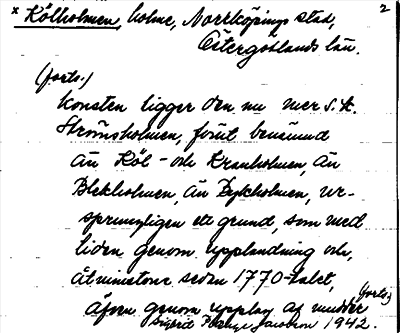 x Kölholmen, holme, Norrköpings stad, 2
Östergötlands län.
(forts.)
konsten ligger den nu mer s.k.
Strömsholmen, förut benämnd
än Köl- och Kranholmen, än
Blekholmen, än Dykholmen, ur-
sprungligen ett grund, som med
tiden genom uppländning och,
åtminstone sedan 1770-talet,
äfven genom upplag af mudder
(forts.)
Sigrid 1942.